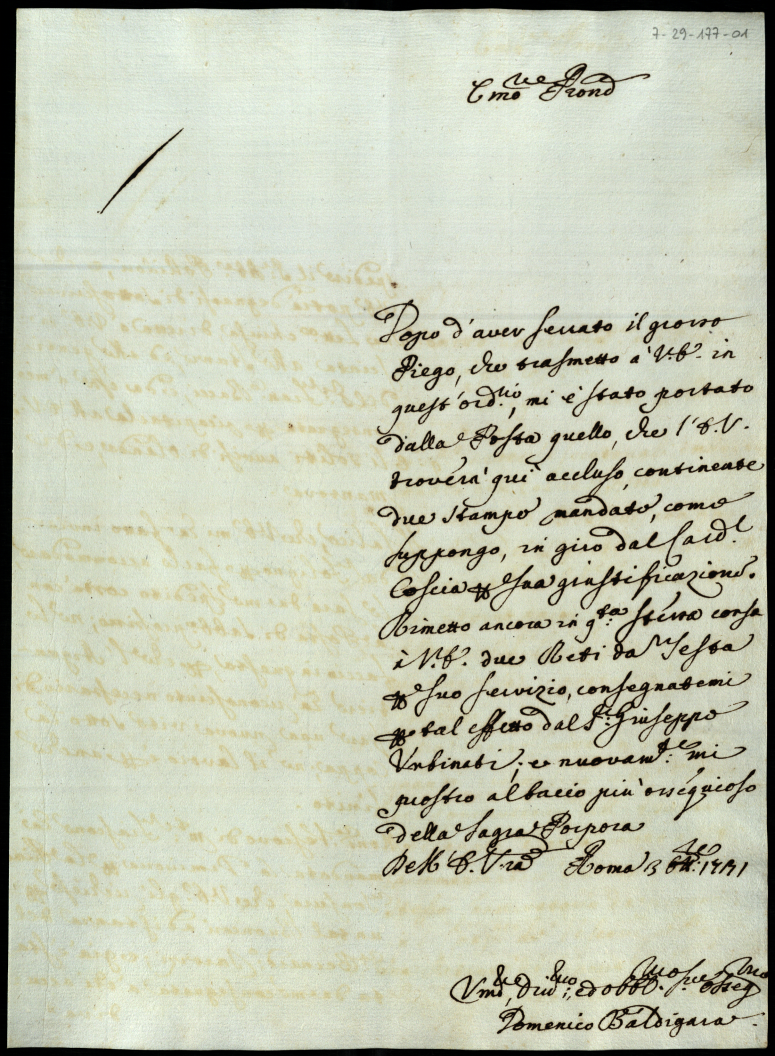 7-29-177-01
Emo e Rmo Pron
Dopo d'aver serrato il grosso
Piego, che trasmetto à V.E. in
quest'ordrio, mi è stato portato
dalla Posta quello, che l'E.V.
troverà qui accluso, continente
due stampe mandate, come
suppongo, in giro dal Card.l
Coscia per sua giustificazione.
Rimetto ancora in q.ta stessa
à V.E. due Reti da Testa
per suo servizio, consegnatemi
per tal effetto dal Sr. Giuseppe
Urbinati; e nuovam.te mi
prostro al bacio più ossequioso
della Sagra Porpora
Dell'E. Vra Roma 3 1731
Vmo, ed obblmo
Domenico Baldigara